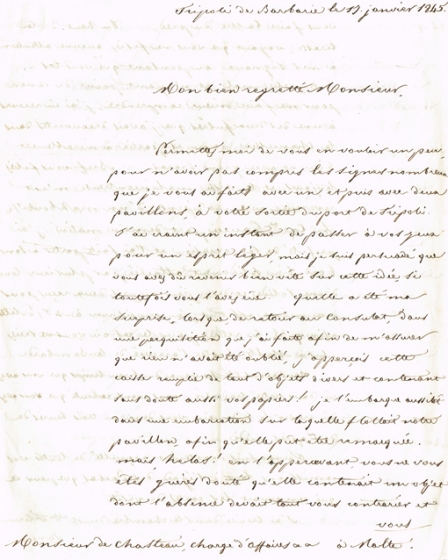 Tripoli de Barbarie le 17. janvier 1845.
Mon bien regretté Monsieur,
Permettez moi de vous en vouloir un peu
pour n'avoir pas compris les signes nombreux
que je vous ai faits avec un et puis avec deux
pavillons, à votre sortie du port de Tripoli.
J'ai craint un instant de passer à vos yeux
pour un esprit léger, mais je suis persuadé que
vous avez dû revenir bien vite sur cette idée, si
toutefois vous l'avez eue quelle a été ma
surprise, lorsque de retour au Consulat, dans
une perquisition que j'ai faite afin de m'assurer
que rien n'avait été oublié, j'apperçois cette
caisse remplie de tant d'objets divers et contenant
sans doute aussi vos papiers! je l'embarque aussitôt
dans une embarcation sur laquelle flottait notre
pavillon, afin qu'elle put être remarquée.
mais, hélas! en l'appercevant vous ne vous
êtes guères douté qu'elle contenait un objet
dont l'absence devait tant vous contrarier et
vous
Monsieur de Chasteau, chargé d'affaires à Malte.